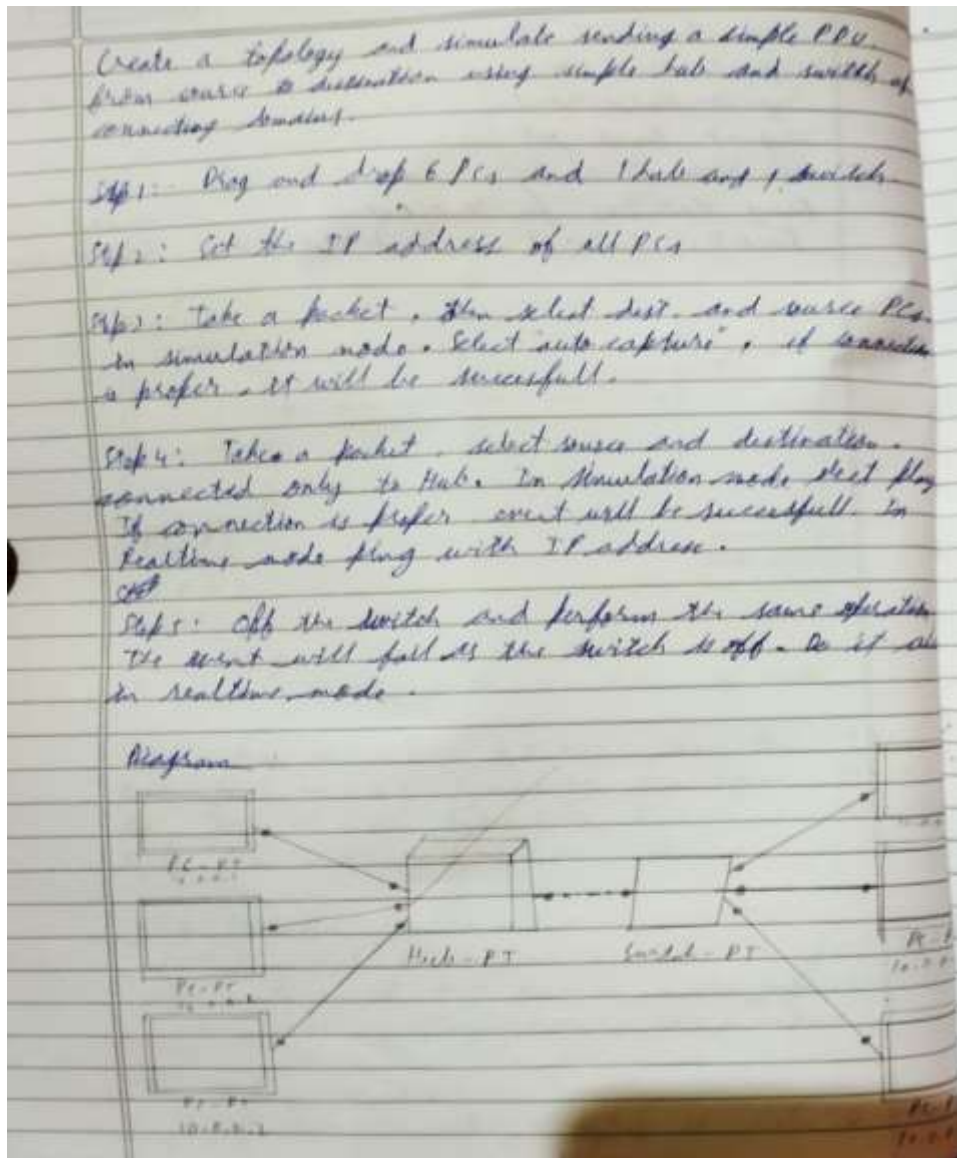 Create a topology and simulate sending a simple PDU
from source to destination using simple hub and switch as
connecting domains.
Step 1: Drag and drop 6 PCs and 1 hub and 1 switch
Step 2: Set the IP address of all PCs
Step 3: Take a packet, then select dest. and source PCs
in simulation mode. Select auto capture, if connection
is proper, it will be succesfull.
Step 4: Take a packet, select source and destination.
connected only to Hub. In simulation mode select play
If connection is proper event will be successfull. In
Realtime mode ping with IP address.
Step 5: Off the switch and perform the same operation
The event will fail as the switch is off. Do it
in realtime mode.
Diagram
PC-PT
Hub-PT
Switch-PT
PC-PT
PC-PT